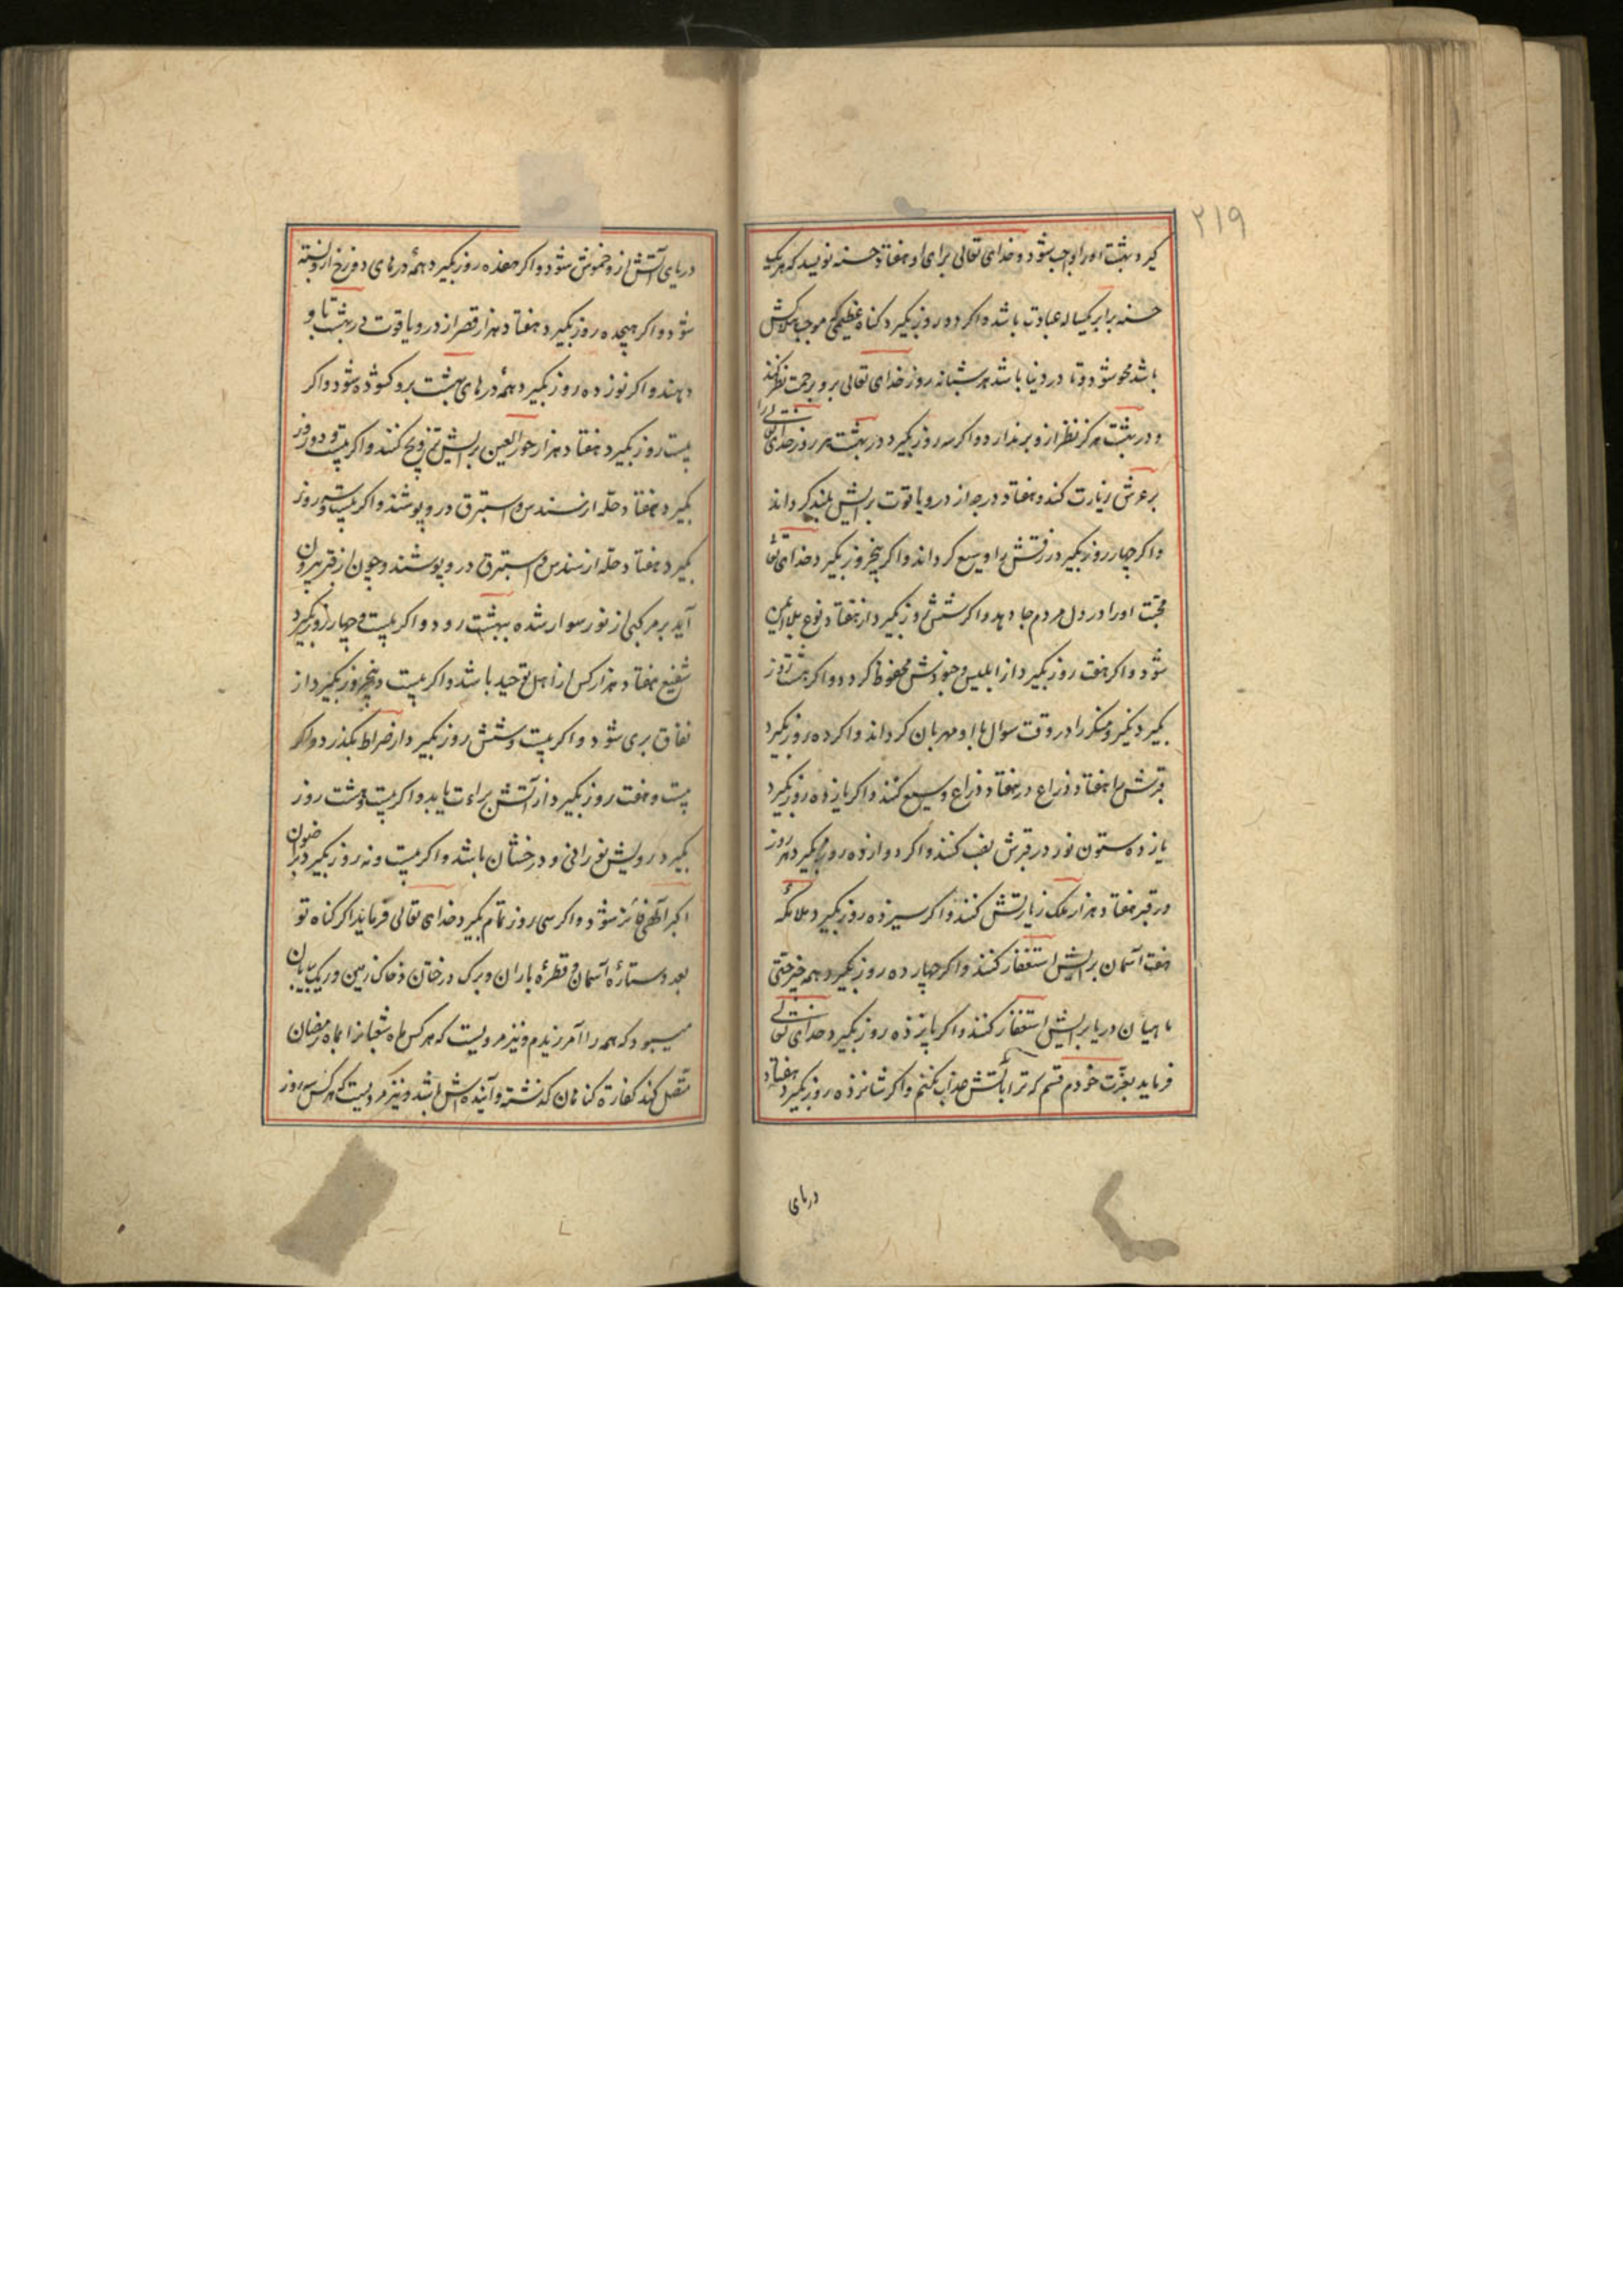 ۲۱۹
گیرد بهشت او را واجب شود و خدای تعالی برای او هفتاد حسنه نویسد که هر یک
حسنه برابر یکساله عبادت باشد و اگر دو روز بگیرد گناه عظیمی که موجب هلاکش
باشد محو شود و تا در دنیا باشد هر شبانه روز خدای تعالی برو برحمت نظر کند
و در بهشت هرگز نظر ازو بر ندارد و اگر سه روز بگیرد در بهشت هر روز خدای تعالی را
بر عرش زیارت کند و هفتاد درجه از در و یاقوت برایش بلند گرداند
و اگر چهار روز بگیرد رزقش را وسیع گرداند و اگر پنج روز بگیرد خدای تعا
محبت او را در دل مردم جا دهد و اگر شش روز بگیرد از هفتاد نوع بلا ایمن
شود و اگر هفت روز بگیرد از ابلیس و جنودش محفوظ گردد و اگر هشت روز
بگیرد نکیر و منکر را در وقت سوال با او مهربان گرداند و اگر ده روز بگیرد
قبرش را هفتاد ذراع در هفتاد ذراع وسیع کنند و اگر یازده روز بگیرد
یازده ستون نور در قبرش نصب کنند و اگر دوازده روز بگیرد هر روز
در قبر هفتاد هزار ملک زیارتش کنند و اگر سیزده روز بگیرد ملائکهٔ
هفت آسمان برایش استغفار کنند و اگر چهارده روز بگیرد همه چیز حتی
ماهیان دریا برایش استغفار کنند و اگر پانزده روز بگیرد خدای تعالی
فرماید بعزت خودم قسم که ترا بآتش عذاب نکنم و اگر شانزده روز بگیرد هفتاد
دریای
دریای آتش ازو خموش شود و اگر هفده روز بگیرد همهٔ درهای دوزخ ازو بسته
شود و اگر هیجده روز بگیرد هفتاد هزار قصر از در و یاقوت در بهشت با و
دهند و اگر نوزده روز بگیرد همهٔ درهای بهشت برو کشوده شود و اگر
بیست روز بگیرد هفتاد هزار حور العین برایش تزویج کنند و اگر بیست و دو روز
بگیرد هفتاد حله از سندس و استبرق درو پوشند و اگر بیست و سه روز
بگیرد هفتاد حله از سندس و استبرق درو پوشند و چون از قبر بیرون
آید بر مرکبی از نور سوار شده ببهشت رود و اگر بیست و چهار روز بگیرد
شفیع هفتاد هزار کس از اهل توحید باشد و اگر بیست و پنج روز بگیرد از
نفاق بری شود و اگر بیست و شش روز بگیرد از صراط بگذرد و اگر
بیست و هفت روز بگیرد از آتش براءت یابد و اگر بیست و هشت روز
بگیرد رویش نورانی و درخشان باشد و اگر بیست و نه روز بگیرد برضوان
اکبر الهی فائز شود و اگر سی روز تمام بگیرد خدای تعالی فرماید اگر گناه تو
بعدد ستارهٔ آسمان و قطرهٔ باران و برگ درختان و خاک زمین و ریگ بیابان
میبود که همه را آمرزیدم و نیز مرویست که هر کس ماه شعبانرا بماه رمضان
متصل کند کفارهٔ گناهان گذشته و آینده اش باشد و نیز مرویست که هر کس سه روز